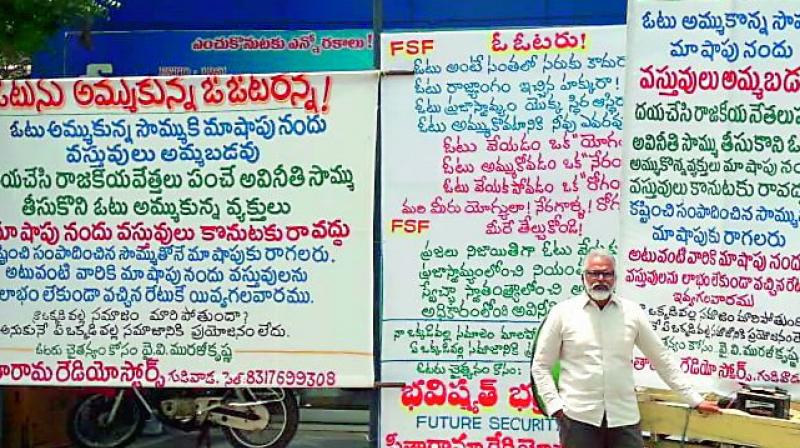 ఎంచుకొనుటకు ఎన్నోరకాలు!
ఓటును అమ్ముకున్న ఓ ఓటరన్నా!
ఓటు అమ్ముకున్న సొమ్ముకి మా షాపు నందు
వస్తువులు అమ్మబడవు
దయచేసి రాజకీయవేత్తలు పంచే అవినీతి సొమ్ము
తీసుకొని ఓటు అమ్ముకున్న వ్యక్తులు
మా షాపు నందు వస్తువులు కొనుటకు రావద్దు
కష్టించి సంపాదించిన సొమ్ముతోనే మా షాపుకు రాగలరు.
అటువంటి వారికి మా షాపు నందు వస్తువులను
లాభం లేకుండా వచ్చిన రేటుకే యివ్వగలవారము.
నా ఒక్కడి వల్ల సమాజం మారిపోతుందా?
అనుకునే ఏ ఒక్కడి వల్ల సమాజానికి ప్రయోజనం లేదు.
ఓటరు చైతన్యం కోసం వై.వి. మురళీకృష్ణ
రామా రేడియో స్టోర్స్, గుడివాడ. సెల్: 8317699308
FSF ఓ ఓటరు!
ఓటు అంటే సంతలో సరుకు కాదురా
ఓటు రాజ్యాంగం ఇచ్చిన హక్కురా!
ఓటు ప్రజాస్వామ్యం యొక్క స్థిర ఆస్తి
ఓటు అమ్ముకోవటానికి నీవు ఎవరవు
ఓటు వేయడం ఒక "యోగం
ఓటు అమ్ముకోవడం ఒక "నేరం
ఓటు వేయకపోవడం ఒక "రోగం
మరి మీరు యోగ్యులా! నేరగాళ్ళా!
మీరే తేల్చుకోండి!
FSF
ప్రజలు నిజాయితీగా ఓటు వేయ
ప్రజాస్వామ్యంలోంచి నియం
స్వేచ్ఛా స్వాతంత్ర్యంలోంచి
అధికారంలోంచి అవినీతి
నా ఒక్కడివల్ల సమాజం మారిపో
ఏ ఒక్కడివల్ల సమాజానికి
ఓటరు చైతన్యం కోసం:
భవిష్యత్ భ
FUTURE SECURIT
సీతారామా రేడియో
ఓటు అమ్ముకొన్న సొ
మా షాపు నందు
వస్తువులు అమ్మబడ
దయచేసి రాజకీయ నేతలు
అవినీతి సొమ్ము తీసుకొని ఓ
అమ్ముకొన్న వ్యక్తులు మా షాపు నం
వస్తువులు కొనుటకు రావద్
కష్టించి సంపాదించిన సొమ్ము
మా షాపుకు రాగలరు
అటువంటి వారికి మా షాపు నం
వస్తువులను లాభం లేకుండా వచ్చిన రేట
ఇవ్వగలవారము
నా ఒక్కడి వల్ల సమాజం మారిపోతుం
ఏ ఒక్కడివల్ల సమాజానికి ప్రయోజనం
చైతన్యం కోసం: వై.వి. మురళీకృ
రేడియో స్టోర్స్, గుడివాడ